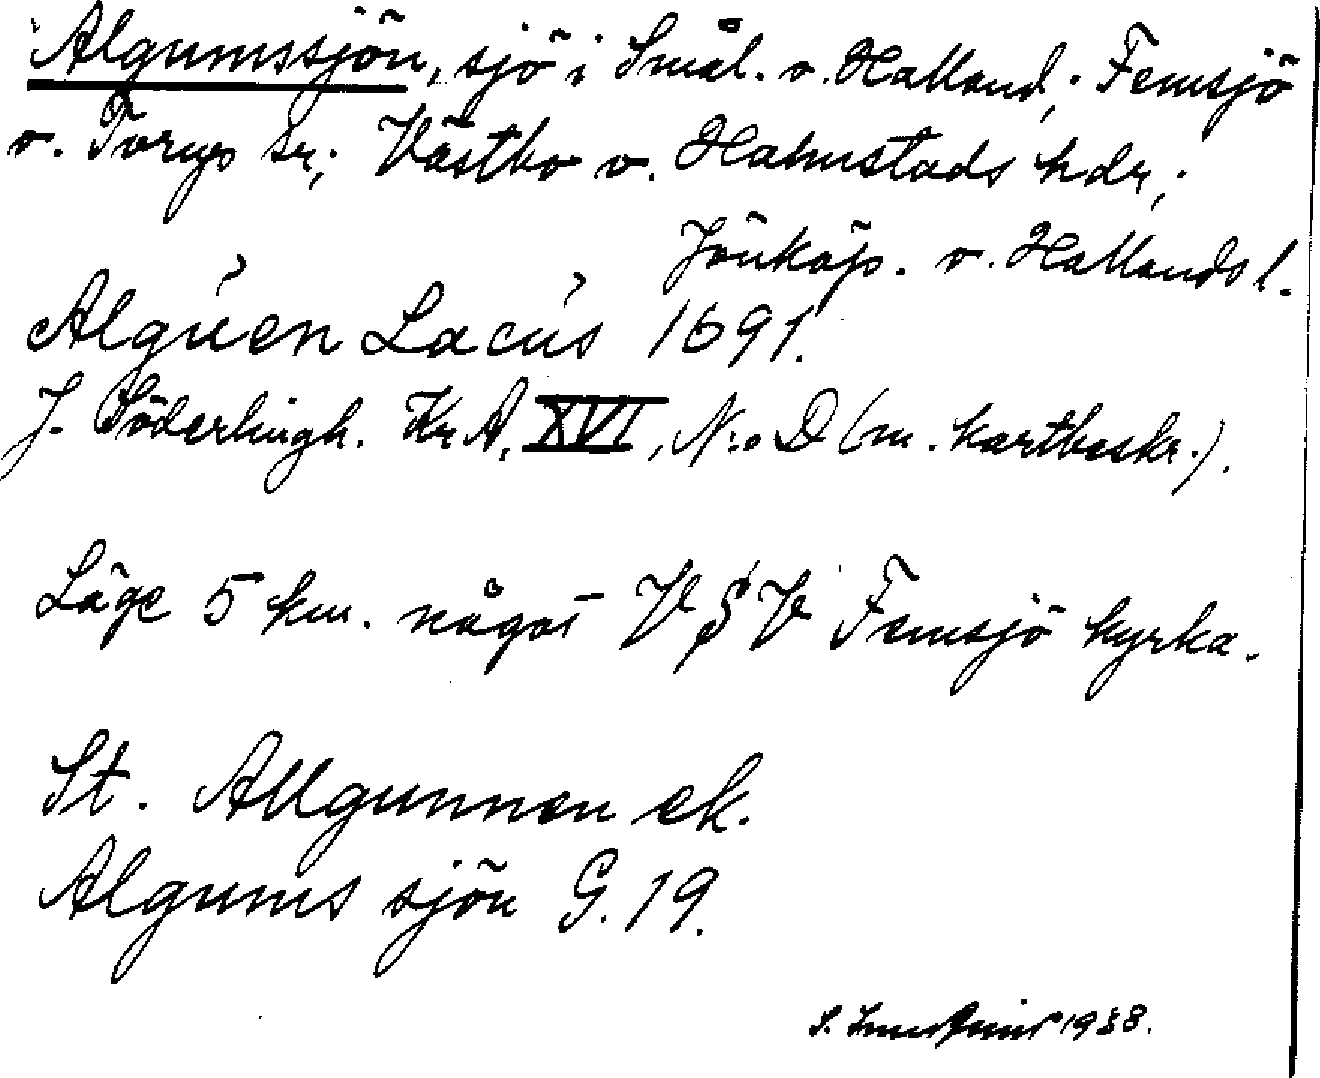 Algumssjön, sjö i Smål. o. Halland; Femsjö
o. Torups sr; Västbo o. Halmstads hdr;
Jönköp. o. Hallands l.
Algúen Lacús 1691.
J. Söderlingh. Kr.A. XVI, N:o D (m. kartbeskr.).
Läge 5 km. något VSV Femsjö kyrka.
St. Allgunnen ek.
Algums sjön G. 19.
S. 1938.